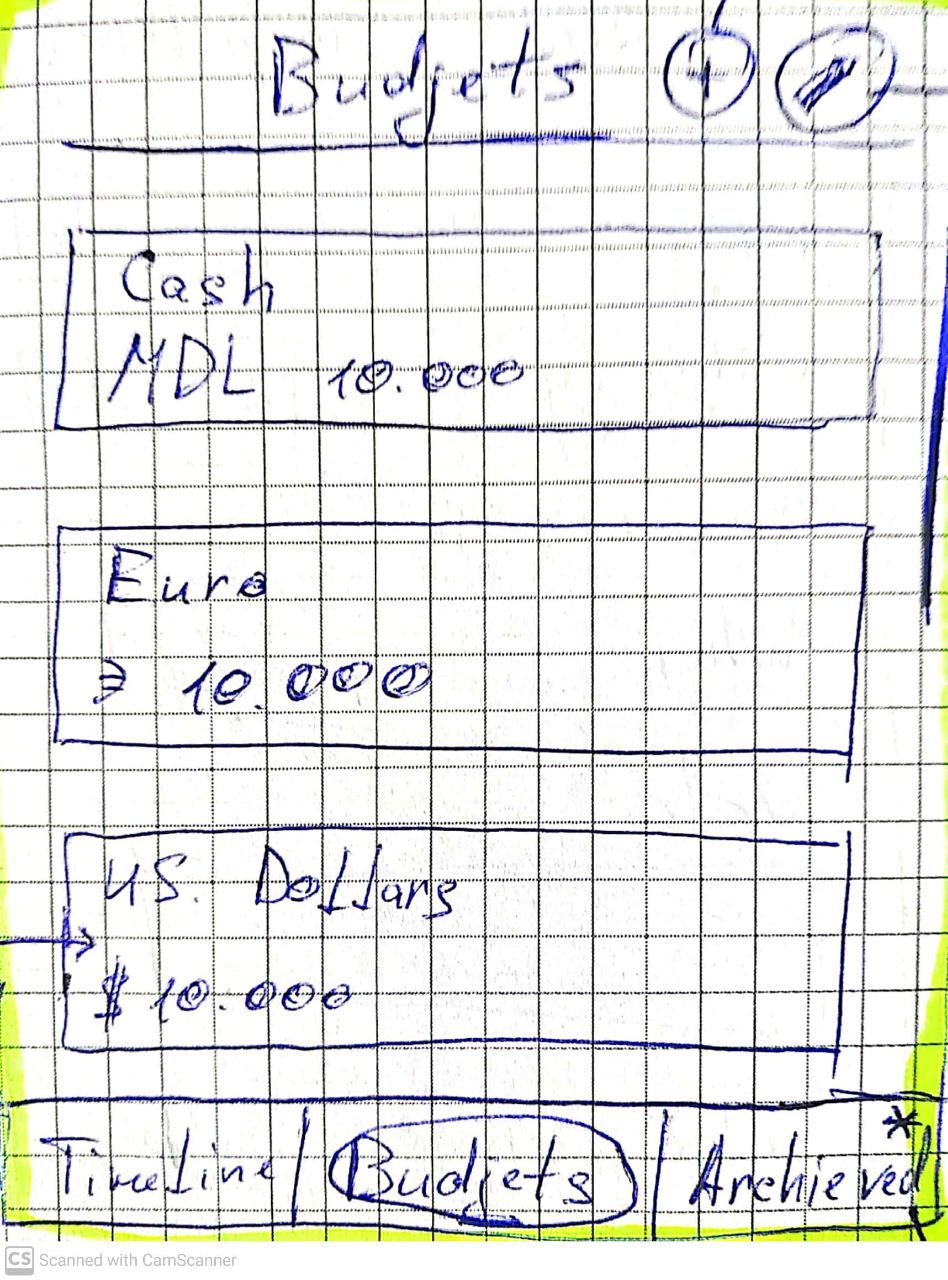 Budjets +
Cash
MDL 10.000
Euro
10.000
US. Dollars
$ 10.000
Timeline | Budjets | Archieved *
CS Scanned with CamScanner